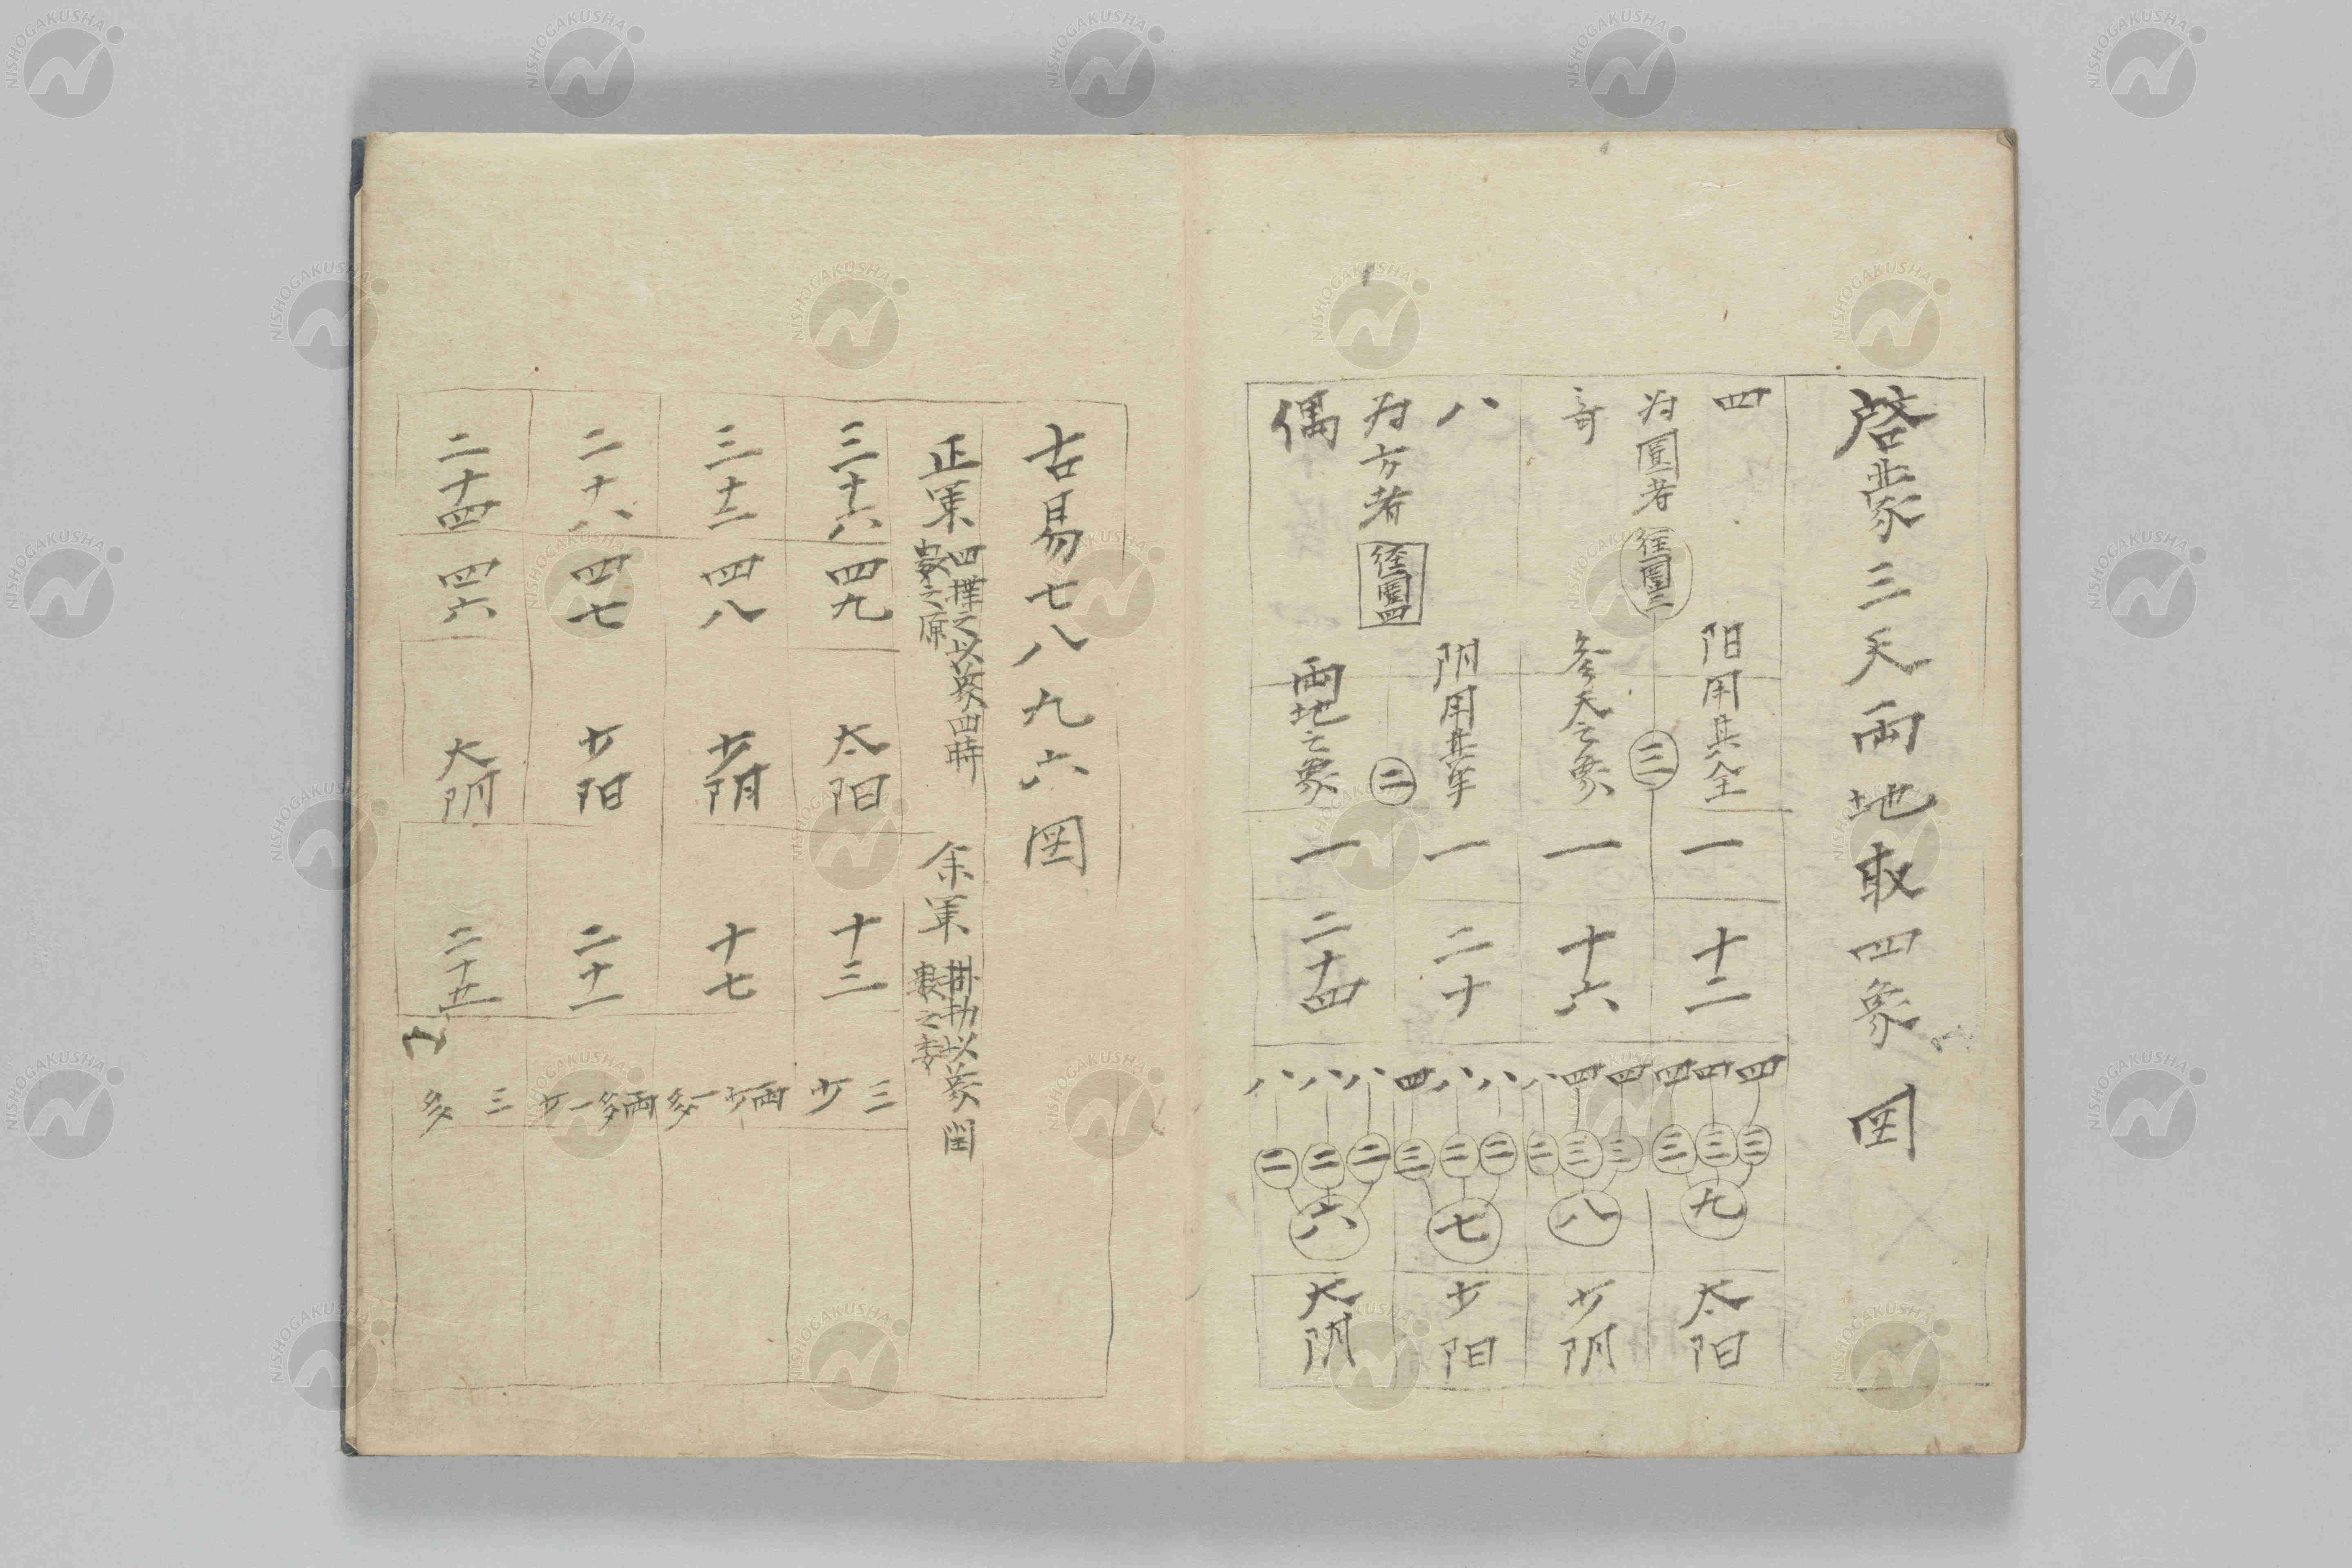 啓蒙三天両地取四象図
四
為圓者
径圍三
奇
陽用其全
三
参天之象
八
為方者
径圍四
偶
阴用其半
二
両地之象
一
一
一
一
十二
十六
二十
二十四
四四四
四四八
八八四
八八八
三三三
三三二
二二三
二二二
九
八
七
六
太阳
少阴
少阳
太阴
古易七八九六図
正策
四揲之以象四時
數之原
余策
掛扐以象閏
數之委
三十六
四九
太阳
十三
三少
三十二
四八
少阴
十七
両少一多
二十八
四七
少阳
二十一
両多一少
二十四
四六
太阴
二十五
三多
NISHOGAKUSHA